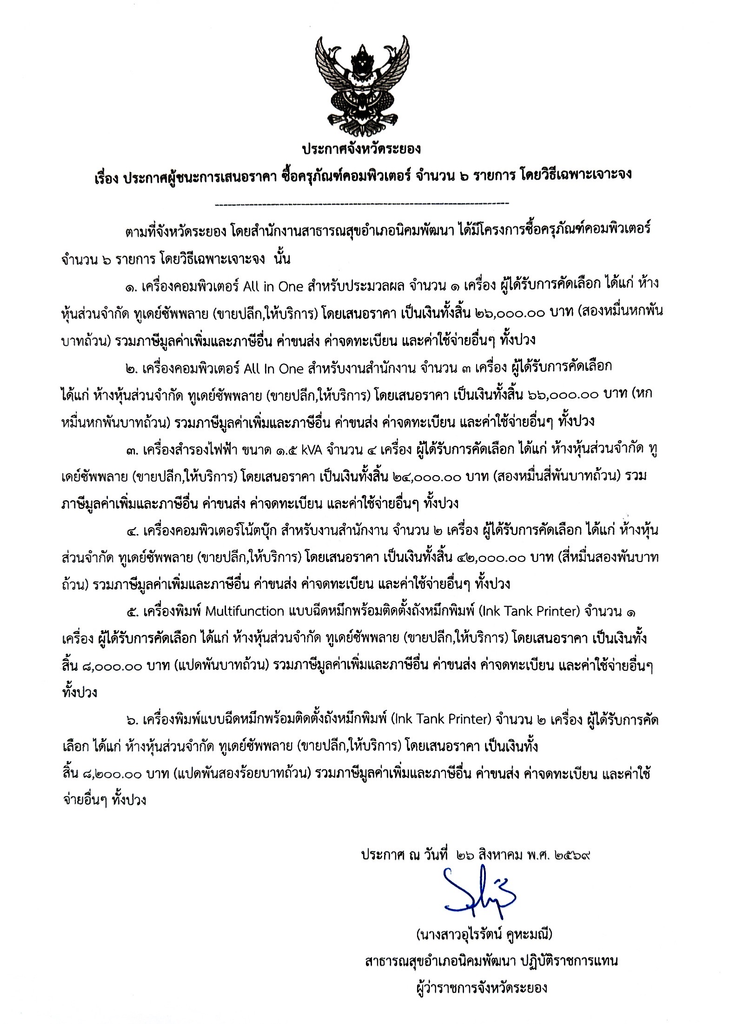 ประกาศจังหวัดระยอง
เรื่อง ประกาศผู้ชนะการเสนอราคา ซื้อครุภัณฑ์คอมพิวเตอร์ จำนวน ๖ รายการ โดยวิธีเฉพาะเจาะจง
--------------------------------------------------------------------
ตามที่จังหวัดระยอง โดยสำนักงานสาธารณสุขอำเภอนิคมพัฒนา ได้มีโครงการซื้อครุภัณฑ์คอมพิวเตอร์
จำนวน ๖ รายการ โดยวิธีเฉพาะเจาะจง นั้น
๑. เครื่องคอมพิวเตอร์ All in One สำหรับประมวลผล จำนวน ๑ เครื่อง ผู้ได้รับการคัดเลือก ได้แก่ ห้าง
หุ้นส่วนจำกัด ทูเดย์ซัพพลาย (ขายปลีก,ให้บริการ) โดยเสนอราคา เป็นเงินทั้งสิ้น ๒๖,๐๐๐.๐๐ บาท (สองหมื่นหกพัน
บาทถ้วน) รวมภาษีมูลค่าเพิ่มและภาษีอื่น ค่าขนส่ง ค่าจดทะเบียน และค่าใช้จ่ายอื่นๆ ทั้งปวง
๒. เครื่องคอมพิวเตอร์ All In One สำหรับงานสำนักงาน จำนวน ๓ เครื่อง ผู้ได้รับการคัดเลือก
ได้แก่ ห้างหุ้นส่วนจำกัด ทูเดย์ซัพพลาย (ขายปลีก,ให้บริการ) โดยเสนอราคา เป็นเงินทั้งสิ้น ๖๖,๐๐๐.๐๐ บาท (หก
หมื่นหกพันบาทถ้วน) รวมภาษีมูลค่าเพิ่มและภาษีอื่น ค่าขนส่ง ค่าจดทะเบียน และค่าใช้จ่ายอื่นๆ ทั้งปวง
๓. เครื่องสำรองไฟฟ้า ขนาด ๑.๕ kVA จำนวน ๔ เครื่อง ผู้ได้รับการคัดเลือก ได้แก่ ห้างหุ้นส่วนจำกัด ทู
เดย์ซัพพลาย (ขายปลีก,ให้บริการ) โดยเสนอราคา เป็นเงินทั้งสิ้น ๒๔,๐๐๐.๐๐ บาท (สองหมื่นสี่พันบาทถ้วน) รวม
ภาษีมูลค่าเพิ่มและภาษีอื่น ค่าขนส่ง ค่าจดทะเบียน และค่าใช้จ่ายอื่นๆ ทั้งปวง
๔. เครื่องคอมพิวเตอร์โน้ตบุ๊ก สำหรับงานสำนักงาน จำนวน ๒ เครื่อง ผู้ได้รับการคัดเลือก ได้แก่ ห้างหุ้น
ส่วนจำกัด ทูเดย์ซัพพลาย (ขายปลีก,ให้บริการ) โดยเสนอราคา เป็นเงินทั้งสิ้น ๔๒,๐๐๐.๐๐ บาท (สี่หมื่นสองพันบาท
ถ้วน) รวมภาษีมูลค่าเพิ่มและภาษีอื่น ค่าขนส่ง ค่าจดทะเบียน และค่าใช้จ่ายอื่นๆ ทั้งปวง
๕. เครื่องพิมพ์ Multifunction แบบฉีดหมึกพร้อมติดตั้งถังหมึกพิมพ์ (Ink Tank Printer) จำนวน ๑
เครื่อง ผู้ได้รับการคัดเลือก ได้แก่ ห้างหุ้นส่วนจำกัด ทูเดย์ซัพพลาย (ขายปลีก,ให้บริการ) โดยเสนอราคา เป็นเงินทั้ง
สิ้น ๘,๐๐๐.๐๐ บาท (แปดพันบาทถ้วน) รวมภาษีมูลค่าเพิ่มและภาษีอื่น ค่าขนส่ง ค่าจดทะเบียน และค่าใช้จ่ายอื่นๆ
ทั้งปวง
๖. เครื่องพิมพ์แบบฉีดหมึกพร้อมติดตั้งถังหมึกพิมพ์ (Ink Tank Printer) จำนวน ๒ เครื่อง ผู้ได้รับการคัด
เลือก ได้แก่ ห้างหุ้นส่วนจำกัด ทูเดย์ซัพพลาย (ขายปลีก,ให้บริการ) โดยเสนอราคา เป็นเงินทั้ง
สิ้น ๘,๒๐๐.๐๐ บาท (แปดพันสองร้อยบาทถ้วน) รวมภาษีมูลค่าเพิ่มและภาษีอื่น ค่าขนส่ง ค่าจดทะเบียน และค่าใช้
จ่ายอื่นๆ ทั้งปวง
ประกาศ ณ วันที่ ๒๖ สิงหาคม พ.ศ. ๒๕๖๙
(นางสาวอุไรรัตน์ คูหะมณี)
สาธารณสุขอำเภอนิคมพัฒนา ปฏิบัติราชการแทน
ผู้ว่าราชการจังหวัดระยอง